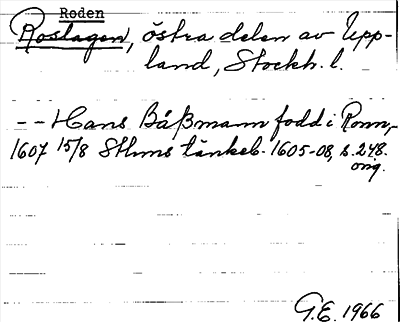 Roden
Roslagen, östra delen av Upp-
land, Stockh. l.
-- Hans Båßmann född i Ronn,-
1607 15/8 Sthms tänkeb. 1605-08, s. 248.
orig.
G.E. 1966